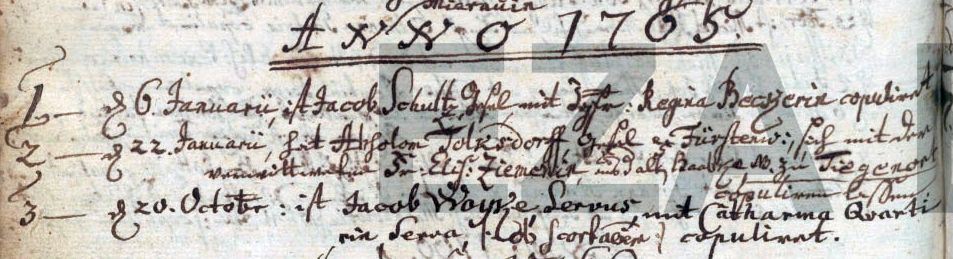 ANNO 1765.
1 — d 6 Januarii, ist Jacob Schultz Gesel mit Jgfr: Regina copuliret
2 — d 22. Januarii, hat Absolom Tolksdorff Gesel ex Fürstenw:, sich mit der
verwittweten Fr: Elis: Ziemerin, zu Tiegenort
copuliren lassen.
3 — d 20. Octobr: ist Jacob Woyke Servus, mit Catharina Quarti
rin Serva, copuliret.
EZA